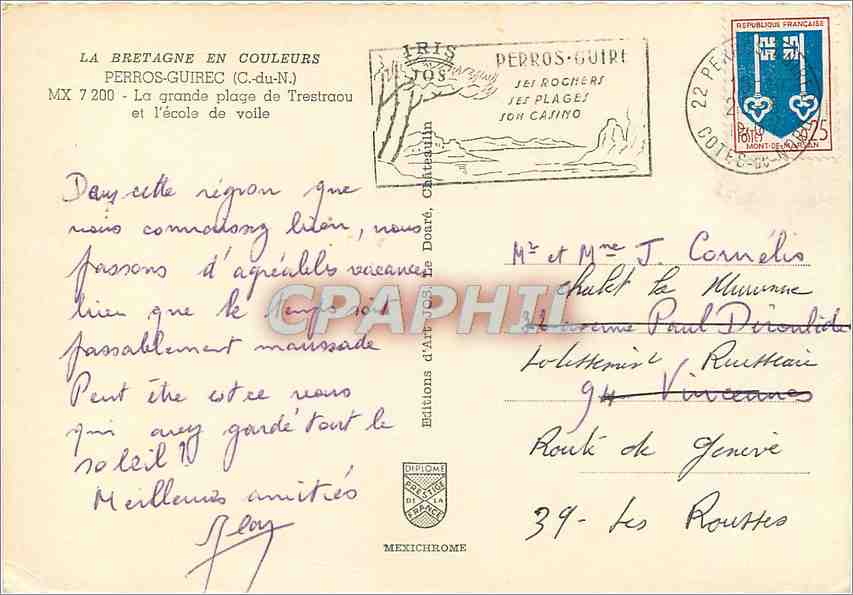 LA BRETAGNE EN COULEURS
PERROS-GUIREC (C.-du-N.)
MX 7 200 - La grande plage de Trestraou
et l'école de voile
IRIS
JOS
PERROS-GUIRE
SES ROCHERS
SES PLAGES
SON CASINO
REPUBLIQUE FRANÇAISE
25
MONT-DE-MARSAN
22 PE
COTES-DU-NORD
Dans cette région que
vous connaissez bien, nous
passons d'agréables vacances
bien que le temps soit
passablement maussade
Peut être est ce vous
qui avez gardé tout le
soleil ?
Meilleures amitiés
Editions d'Art JOS Le Doaré, Châteaulin
CPAPHIL
DIPLOME
PRESTIGE
DE LA
FRANCE
MEXICHROME
Mr et Mme J. Cornélis
chalet la
avenue Paul Déroulède
Lotissement Ruisseau
94 Vincennes
Route de Genève
39 - Les Rousses